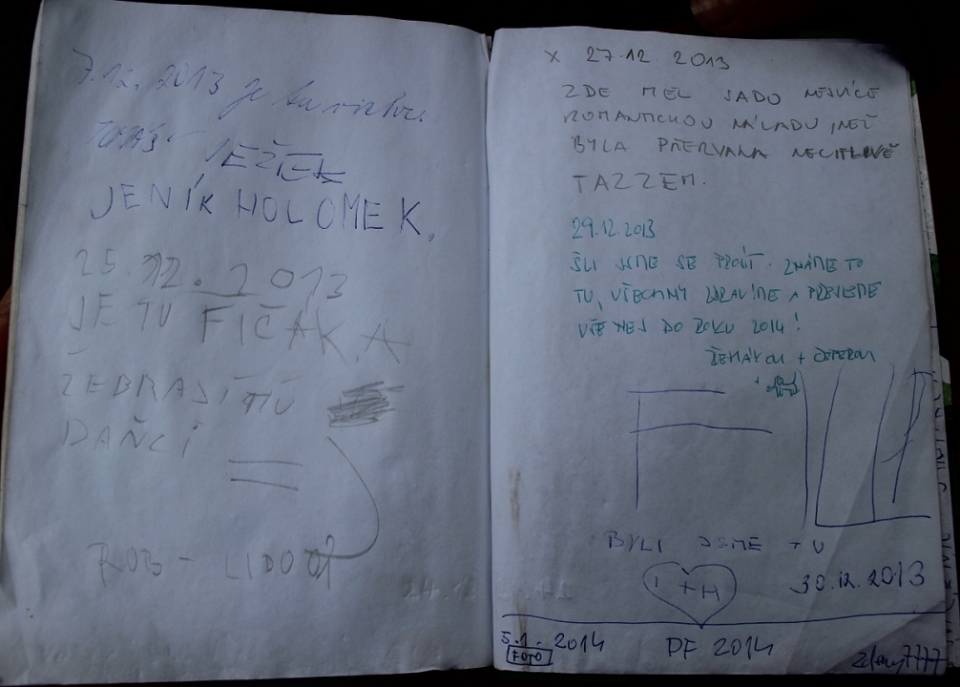 7.12. 2013 je tu
JEŽEK
JENÍK HOLOMEK,
25.12.2013
JE TU FIČÁK. A
DAŇCI
ROB - LIDO
X 27.12 2013
ZDE MEL SADO NEJVÍCE
ROMANTICKOU NÁLADU, NEŽ
BYLA PŘERVANA NECITLIVĚ
TAZZEM.
29.12.2013
ŠLI JSME SE PROJÍT. ZNÁME TO
TU, VŠECHNY ZDRAVÍME A PŘEJEME
VŠE NEJ DO ROKU 2014!
BYLI JSME TU
I + H
30.12.2013
5.1. 2014
FOTO
PF 2014